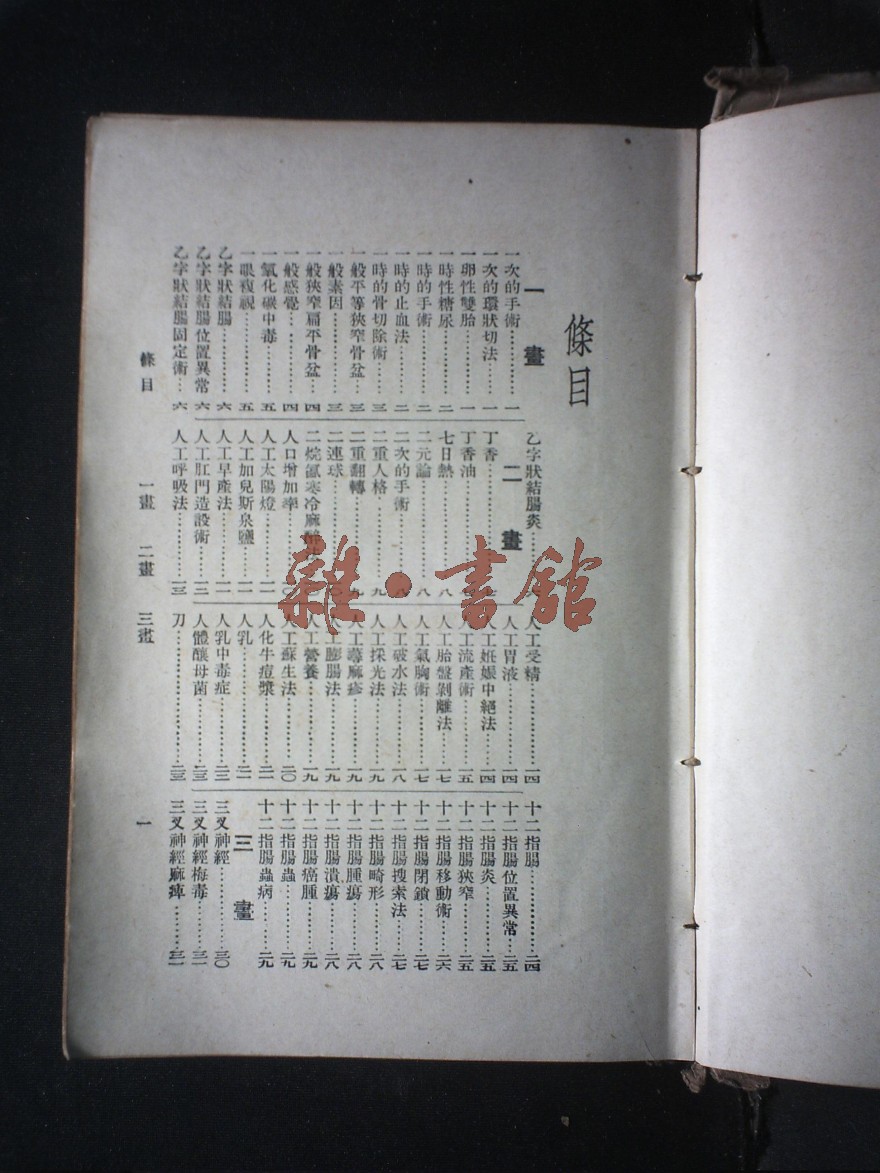 條目
一畫
一次的手術…………一
一次的環狀切法……一
一卵性雙胎…………一
一時性糖尿…………二
一時的手術…………二
一時的止血法………二
一時的骨切除術……三
一般平等狹窄骨盆…三
一般素因……………三
一般狹窄扁平骨盆…四
一般感覺……………四
一氧化碳中毒………五
一眼複視……………五
乙字狀結腸…………六
乙字狀結腸位置異常 六
乙字狀結腸固定術…六
乙字狀結腸炎
二畫
丁香
丁香油
七日熱………………八
二元論………………八
二次的手術
二重人格……………九
二重翻轉
二連球
二烷氯寒冷麻醉
人口增加率
人工太陽燈…………一一
人工加兒斯泉鹽……一一
人工早產法…………一一
人工肛門造設術……一二
人工呼吸法…………一三
人工受精……………一四
人工胃液……………一四
人工姙娠中絕法……一四
人工流產術…………一五
人工胎盤剝離法……一七
人工氣胸術…………一七
人工破水法…………一八
人工採光法…………一九
人工蕁麻疹…………一九
人工膨腸法…………一九
人工營養……………一九
人工蘇生法…………二〇
人化牛痘漿…………二一
人乳…………………二一
人乳中毒症…………二三
人體釀母菌…………二三
刀……………………二三
十二指腸……………二四
十二指腸位置異常…二五
十二指腸炎…………二五
十二指腸狹窄………二五
十二指腸移動術……二六
十二指腸閉鎖………二七
十二指腸搜索法……二七
十二指腸畸形………二八
十二指腸腫瘍………二八
十二指腸潰瘍………二八
十二指腸癌腫………二九
十二指腸蟲…………二九
十二指腸蟲病………二九
三畫
三叉神經……………三〇
三叉神經梅毒………三一
三叉神經麻痺………三一
條目 一畫 二畫 三畫 一
雜·書館